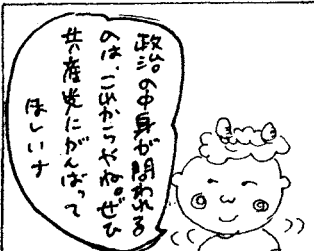 政治の中身が問われる
のは、これからやね。ぜひ
共産党にがんばって
ほしいナ